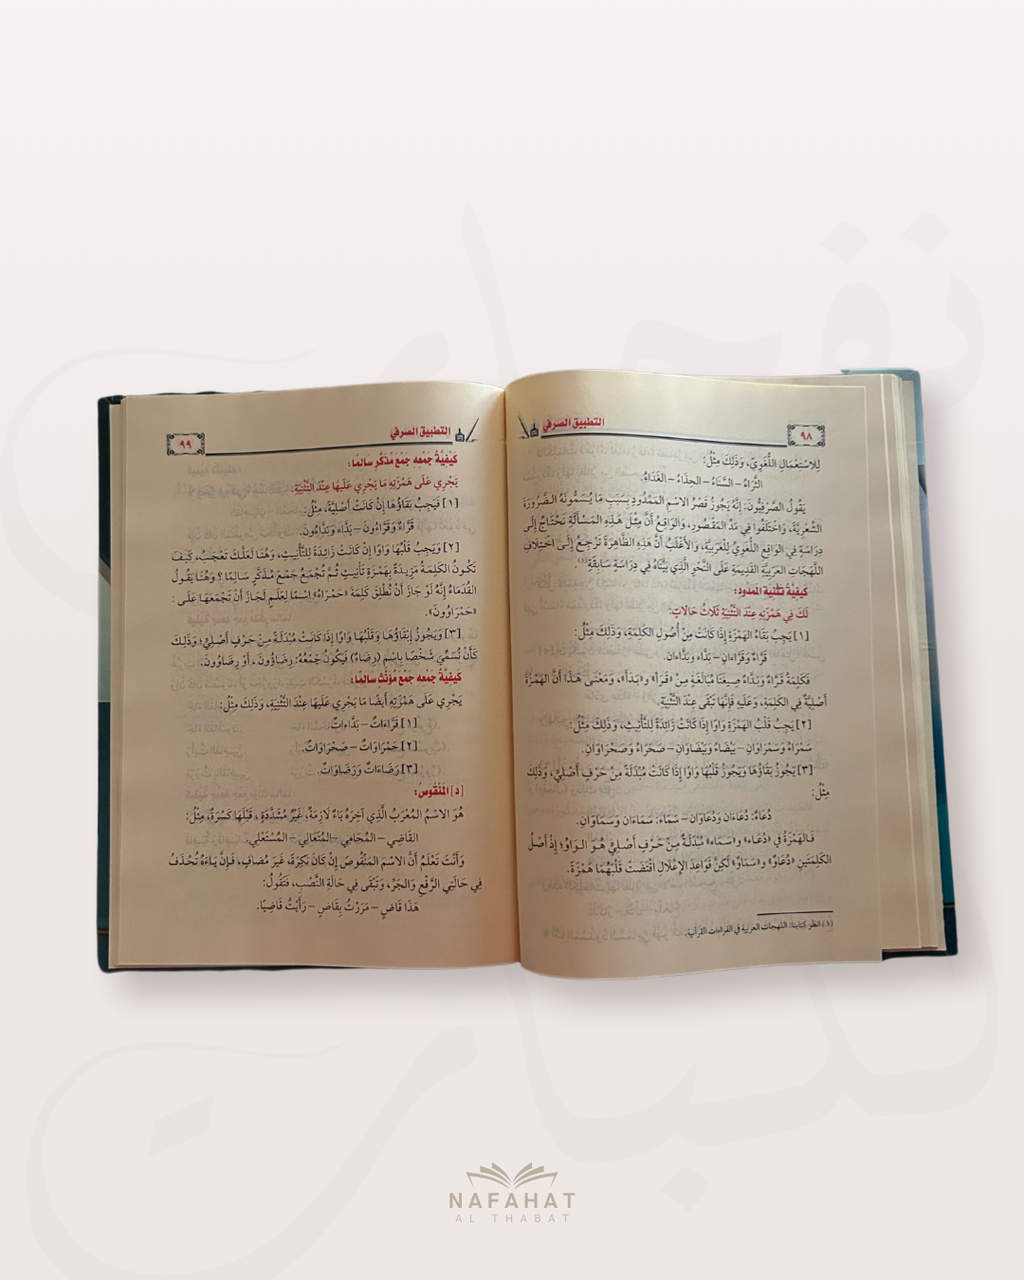 ٩٨
التطبيق الصرفي
لِلِاسْتِعْمَالِ اللُّغَوِيِّ، وَذَلِكَ مِثْلُ:
الثَّرَاءُ – السَّنَاءُ – الحِذَاءُ – الغَدَاءُ.
يَقُولُ الصَّرْفِيُّونَ: إِنَّهُ يَجُوزُ قَصْرُ الِاسْمِ المَمْدُودِ بِسَبَبِ مَا يُسَمُّونَهُ الضَّرُورَةَ
الشِّعْرِيَّةَ، وَاخْتَلَفُوا فِي مَدِّ المَقْصُورِ، وَالوَاقِعُ أَنَّ مِثْلَ هَذِهِ المَسْأَلَةِ تَحْتَاجُ إِلَى
دِرَاسَةٍ فِي الوَاقِعِ اللُّغَوِيِّ لِلْعَرَبِيَّةِ، وَالأَغْلَبُ أَنَّ هَذِهِ الظَّاهِرَةَ تَرْجِعُ إِلَى اخْتِلَافِ
اللَّهَجَاتِ العَرَبِيَّةِ القَدِيمَةِ عَلَى النَّحْوِ الَّذِي بَيَّنَّاهُ فِي دِرَاسَةٍ سَابِقَةٍ(١).
كَيْفِيَّةُ تَثْنِيَةِ المَمْدُودِ:
لَكَ فِي هَمْزَتِهِ عِنْدَ التَّثْنِيَةِ ثَلَاثُ حَالَاتٍ:
[١] يَجِبُ بَقَاءُ الهَمْزَةِ إِذَا كَانَتْ مِنْ أُصُولِ الكَلِمَةِ، وَذَلِكَ مِثْلُ:
قَرَّاءٌ وَقَرَّاءَانِ – بَدَّاء وَبَدَّاءان.
فَكَلِمَةُ قَرَّاءٌ وَبَدَّاءٌ صِيغَتَا مُبَالَغَةٍ مِنْ «قَرَأَ» وَ«بَدَأَ»، وَمَعْنَى هَذَا أَنَّ الهَمْزَةَ
أَصْلِيَّةٌ فِي الكَلِمَةِ، وَعَلَيْهِ فَإِنَّهَا تَبْقَى عِنْدَ التَّثْنِيَةِ.
[٢] يَجِبُ قَلْبُ الهَمْزَةِ وَاوًا إِذَا كَانَتْ زَائِدَةً لِلتَّأْنِيثِ، وَذَلِكَ مِثْلُ:
سَمْرَاءُ وَسَمْرَاوَانِ – بَيْضَاءُ وَبَيْضَاوَانِ – صَحْرَاءُ وَصَحْرَاوَانِ.
[٣] يَجُوزُ بَقَاؤُهَا وَيَجُوزُ قَلْبُهَا وَاوًا إِذَا كَانَتْ مُبْدَلَةً مِنْ حَرْفٍ أَصْلِيٍّ، وَذَلِكَ
مِثْلُ:
دُعَاءٌ: دُعَاءَان وَدُعَاوَان – سَمَاء: سَمَاءَان وَسَمَاوَانِ.
فَالهَمْزَةُ فِي «دُعَاء» وَ«سَمَاء» مُبْدَلَةٌ مِنْ حَرْفٍ أَصْلِيٍّ هُوَ الوَاوُ؛ إِذْ أَصْلُ
الكَلِمَتَيْنِ «دُعَاوٌ» وَ«سَمَاوٌ» لَكِنَّ قَوَاعِدَ الإِعْلَالِ اقْتَضَتْ قَلْبَهُمَا هَمْزَةً.
(١) انظر كتابنا: اللهجات العربية في القراءات القرآنية.
التطبيق الصرفي
٩٩
كَيْفِيَّةُ جَمْعِهِ جَمْعَ مُذَكَّرٍ سَالِمًا:
يَجْرِي عَلَى هَمْزَتِهِ مَا يَجْرِي عَلَيْهَا عِنْدَ التَّثْنِيَةِ:
[١] فَيَجِبُ بَقَاؤُهَا إِنْ كَانَتْ أَصْلِيَّةً، مِثْلُ:
قَرَّاءٌ وَقَرَّاءُونَ – بَدَّاءٌ وَبَدَّاءُونَ.
[٢] وَيَجِبُ قَلْبُهَا وَاوًا إِنْ كَانَتْ زَائِدَةً لِلتَّأْنِيثِ، وَهُنَا لَعَلَّكَ تَعْجَبُ، كَيْفَ
تَكُونُ الكَلِمَةُ مَزِيدَةً بِهَمْزَةِ تَأْنِيثٍ ثُمَّ تُجْمَعُ جَمْعَ مُذَكَّرٍ سَالِمًا؟ وَهُنَا يَقُولُ
القُدَمَاءُ إِنَّهُ لَوْ جَازَ أَنْ تُطْلِقَ كَلِمَةَ «حَمْرَاءُ» اسْمًا لِعَلَمٍ لَجَازَ أَنْ تَجْمَعَهَا عَلَى:
«حَمْرَاوُونَ».
[٣] وَيَجُوزُ إِبْقَاؤُهَا وَقَلْبُهَا وَاوًا إِذَا كَانَتْ مُبْدَلَةً مِنْ حَرْفٍ أَصْلِيٍّ؛ وَذَلِكَ
كَأَنْ تُسَمِّيَ شَخْصًا بِاسْمِ (رِضَاءٌ) فَيَكُونُ جَمْعُهُ: رِضَاؤُونَ، أَوْ رِضَاوُونَ.
كَيْفِيَّةُ جَمْعِهِ جَمْعَ مُؤَنَّثٍ سَالِمًا:
يَجْرِي عَلَى هَمْزَتِهِ أَيْضًا مَا يَجْرِي عَلَيْهَا عِنْدَ التَّثْنِيَةِ، وَذَلِكَ مِثْلُ:
[١] قَرَّاءَاتٌ – بَدَّاءاتٌ.
[٢] حَمْرَاوَاتٌ – صَحْرَاوَاتٌ.
[٣] رِضَاءَاتٌ وَرِضَاوَاتٌ.
[د] المَنْقُوصُ:
هُوَ الِاسْمُ المُعْرَبُ الَّذِي آخِرُهُ يَاءٌ لَازِمَةٌ، غَيْرُ مُشَدَّدَةٍ، قَبْلَهَا كَسْرَةٌ، مِثْلُ:
القَاضِي – المُحَامِي – المُتَعَالِي – المُسْتَعْلِي.
وَأَنْتَ تَعْلَمُ أَنَّ الِاسْمَ المَنْقُوصَ إِنْ كَانَ نَكِرَةً، غَيْرَ مُضَافٍ، فَإِنَّ يَاءَهُ تُحْذَفُ
فِي حَالَتَيِ الرَّفْعِ وَالجَرِّ، وَتَبْقَى فِي حَالَةِ النَّصْبِ، فَتَقُولُ:
هَذَا قَاضٍ – مَرَرْتُ بِقَاضٍ – رَأَيْتُ قَاضِيًا.
NAFAHAT
AL THABAT